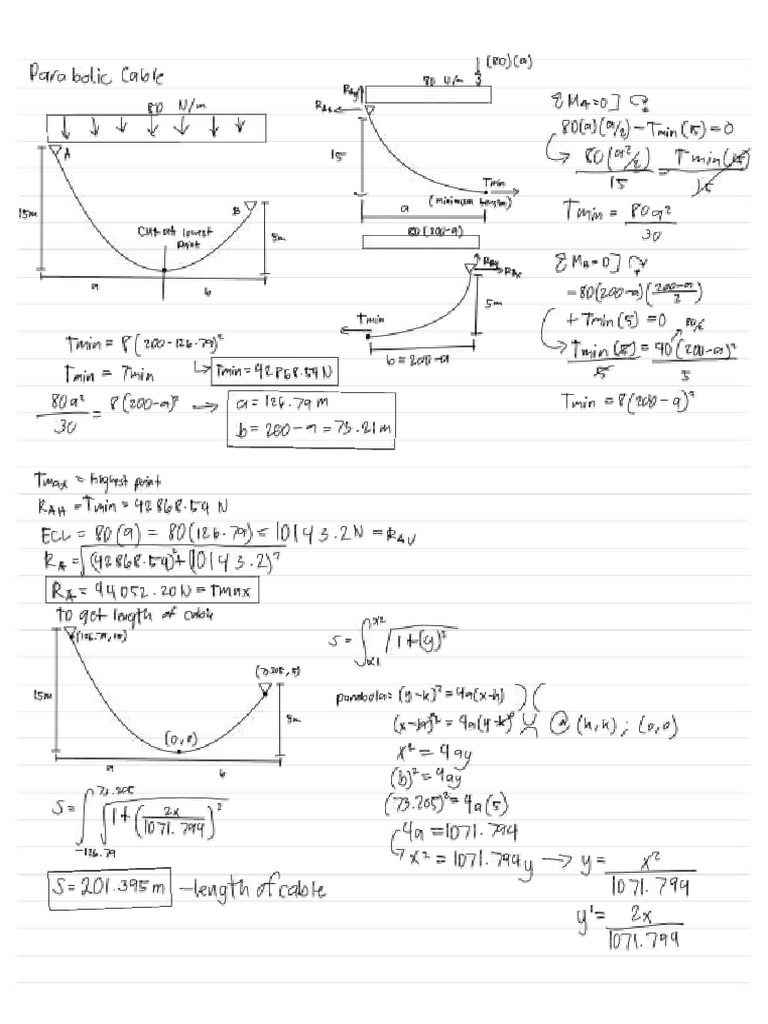 Parabolic Cable
80 N/m
A
15m
B
5m
Cut at lowest
point
a
b
80 N/m
(80)(a)
RAy
RAx
15
Tmin
(minimum tension)
a
80(200-a)
RAy
RAx
5m
Tmin
b = 200-a
ΣMA=0]
80(a)(a/2) - Tmin(15) = 0
80(a²/2) = Tmin(15)
15 15
Tmin = 80a²
30
ΣMA=0]
-80(200-a)(200-a/2)
+ Tmin(5) = 0
80/2
Tmin(5) = 40(200-a)²
5 5
Tmin = 8(200-a)²
Tmin = 8(200-126.79)²
Tmin = Tmin → Tmin = 42868.54N
80a²/30 = 8(200-a)² → a = 126.79 m
b = 200-a = 73.21 m
Tmax = highest point
RAH = Tmin = 42868.54 N
ECL = 80(a) = 80(126.79) = 10143.2N = RAV
RA = √(42868.54)²+(10143.2)²
RA = 44052.20N = Tmax
to get length of cable
(126.79, 15)
(73.205, 5)
15m
5m
(0,0)
a
b
S = ∫x1 x2 √1+(y)²
parabola: (y-k)² = 4a(x-h)
(x-h)² = 4a(y-k) @ (h,k) ; (0,0)
x² = 4ay
(b)² = 4ay
(73.205)² = 4a(5)
4a = 1071.794
x² = 1071.794y → y = x²/1071.794
y' = 2x/1071.794
S = ∫-126.79 73.205 √1+(2x/1071.794)²
S = 201.395 m - length of cable